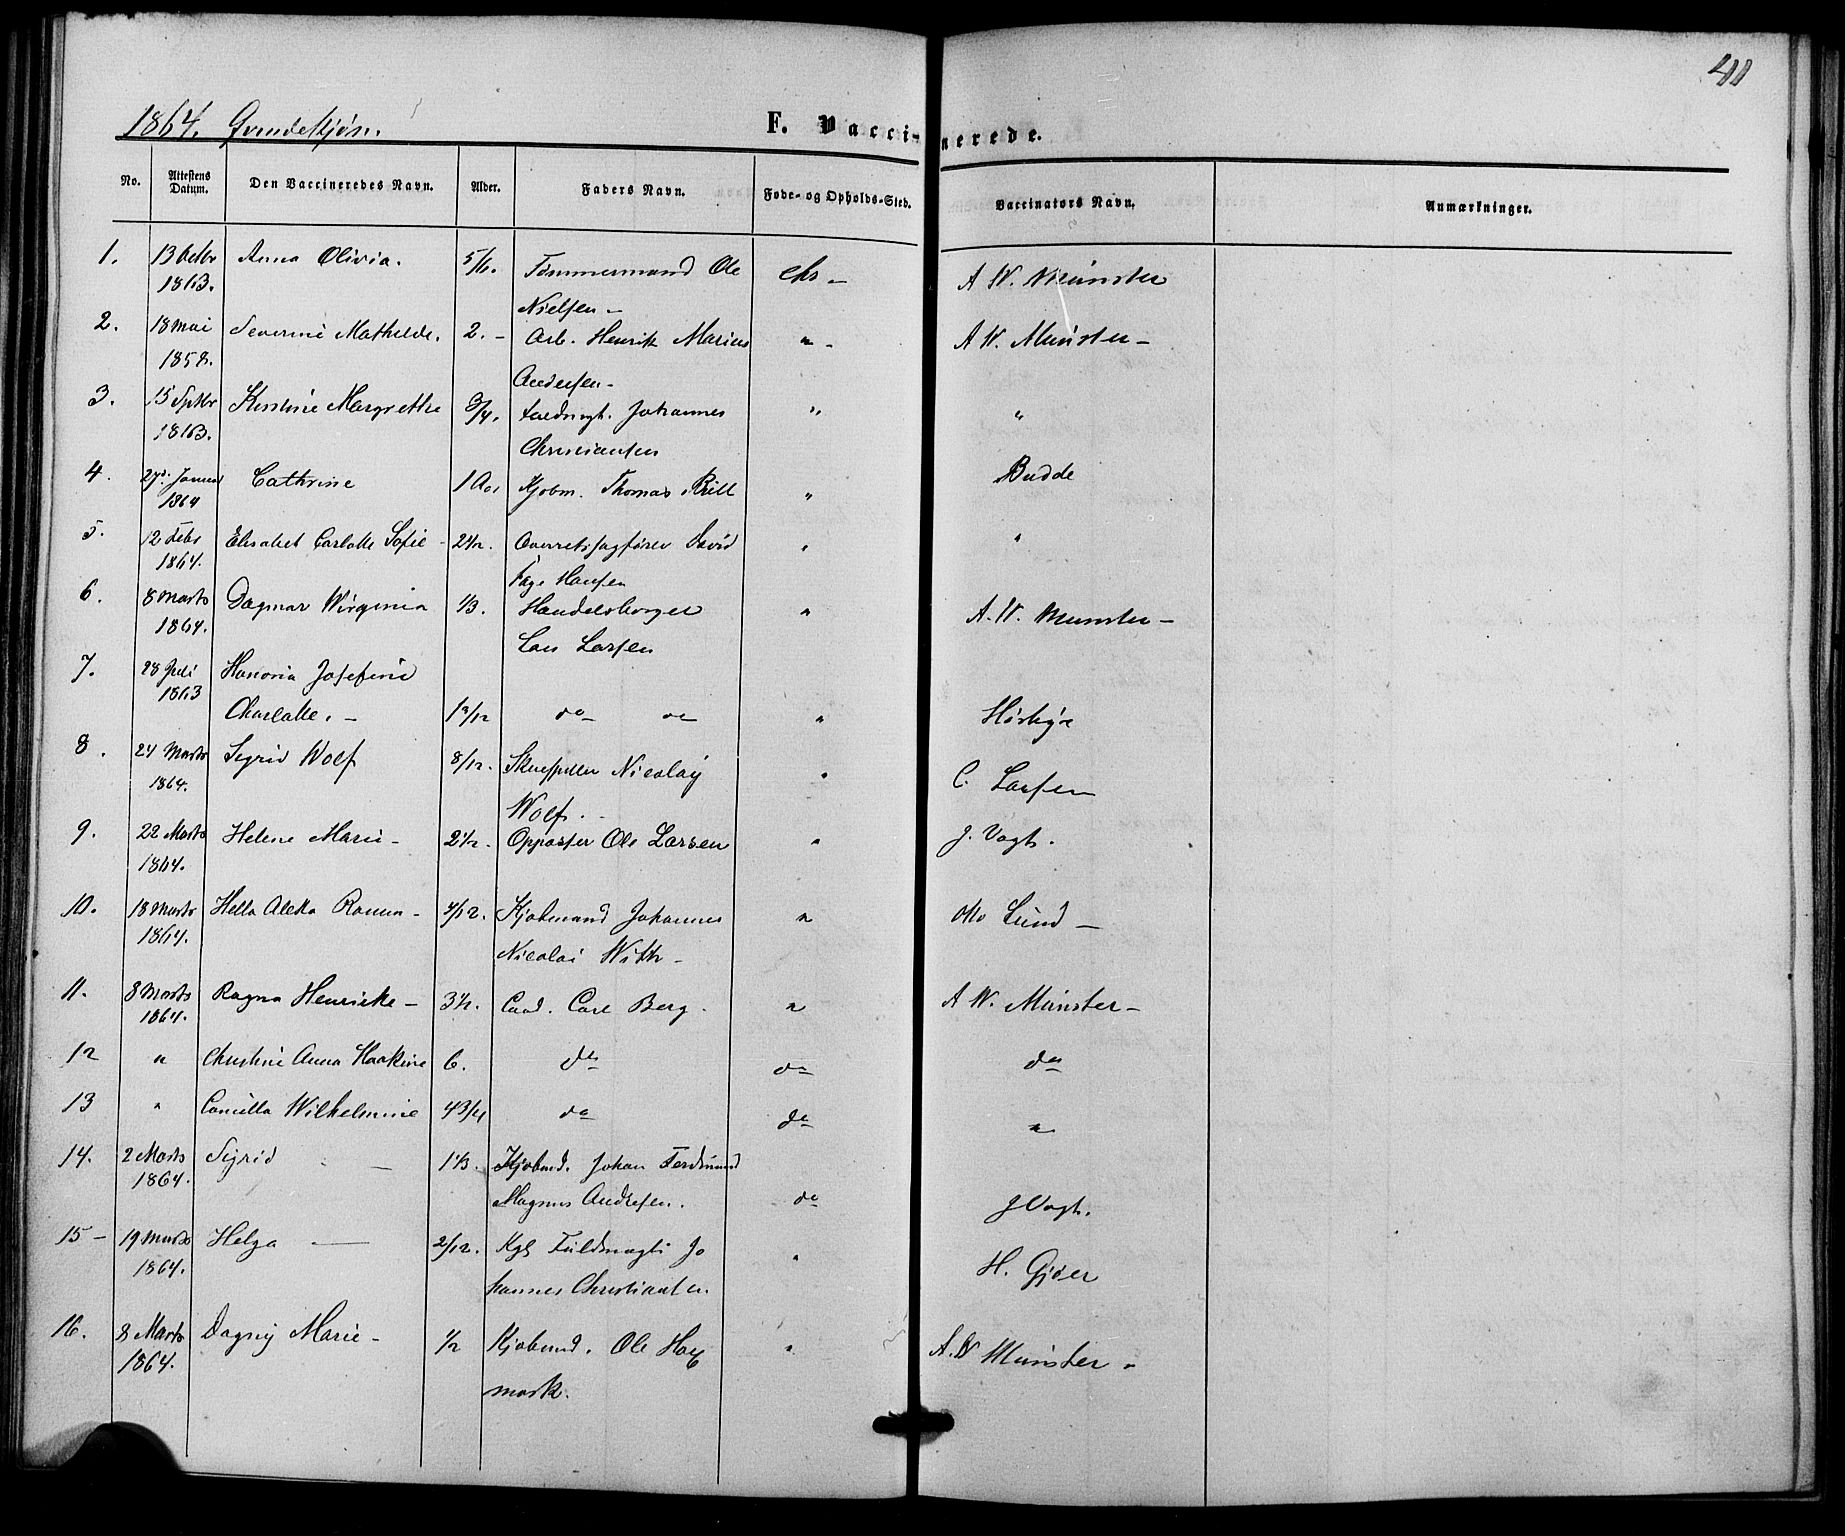 411
1864. Qvindekjøn.
F. Vaccinerede.
No. Attestens Datum. Den Vaccineredes Navn. Alder. Faders Navn. Føde- og Opholds-Sted. Vaccinators Navn. Anmærkninger.
1. 13 Octbr Anna Olivia. 5/6. Tømmermand Ole Chr - A W. Münster
1863. Nielsen -
2. 18 Mai Severine Mathilde. 2. - Arb. Henrik Marius " - A W. Münster -
1858. Andersen -
3. 15 Sptbr Kirstine Margrethe 3/4. Fuldmgt. Johannes " "
1863. Christiansen
4. 27d. Januar Cathrine 1 Aar Kjøbm. Thomas Brill " Budde
1864
5. 12 Febr Elisabet Carlotte Sofie - 2 1/2. Overretssagfører David " "
1864. Hansen
6. 8 Marts Dagmar Virginia 1/3. Handelsborger " A. W. Munster -
1864. Lars Larsen
7. 28 Juli Honoria Josefine
1863 Charlotte. - do do "
8. 24 Marts Sigrid Wolf 8/12. Skuespiller Nicolay " C. Larsen
1864. Wolf. -
9. 22 Marts Helene Marie - 2 1/2. Oppasser Ole Larsen " J. Vogt.
1864.
10. 18 Marts Helta - 4/12. Kjøbmand Johannes " Otto Lund -
1864. Nicolai With -
11. 8 Marts Ragna Henrikke - 3 1/2. Cand. Carl Berg. " A W. Münster -
1864.
12 " Christine Anna Haakine 6. do do do
13 " Camilla Wilhelmine 4 3/4 do do "
14. 2 Marts Sigrid - 1 1/3. Kjøbmd. Johan Ferdinand
1864. Magnus Andresen. do J Vogt.
15 - 19 Marts Helga - 2/12. Kgl Fuldmægti Jo " H. Gjør
1864. hannes Christiansen.
16. 8 Marts Dagny Marie - 1/2 Kjøbmd. Ole Hof " A. W Münster -
1864. mark.